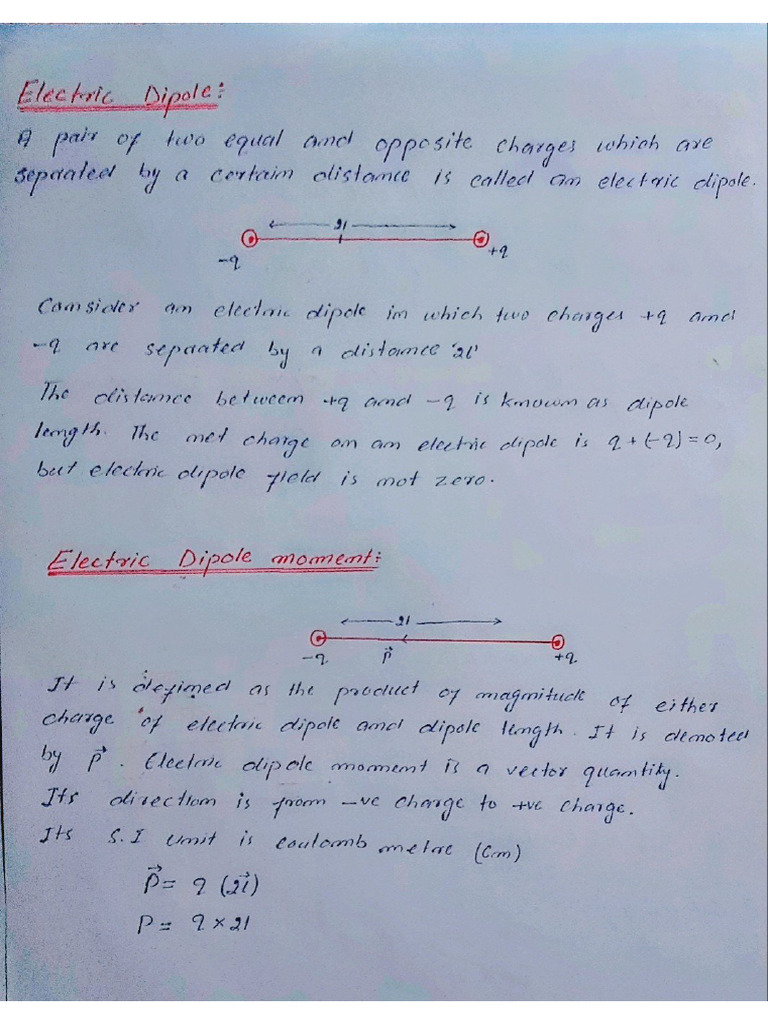 Electric Dipole:
A pair of two equal and opposite charges which are
sepraated by a certain distance is called an electric dipole.
2l
-q +q
Consider an electric dipole in which two charges +q and
-q are sepraated by a distance '2l'
The distance between +q and -q is known as dipole
length. The net charge on an electric dipole is q + (-q) = 0,
but electric dipole field is not zero.
Electric Dipole moment:
2l
-q p⃗ +q
It is defined as the product of magnitude of either
charge of electric dipole and dipole length. It is denoted
by p⃗. Electric dipole moment is a vector quantity.
Its direction is from -ve charge to +ve charge.
Its S.I unit is coulomb metre (Cm)
p⃗ = q (2l⃗)
P = q × 2l